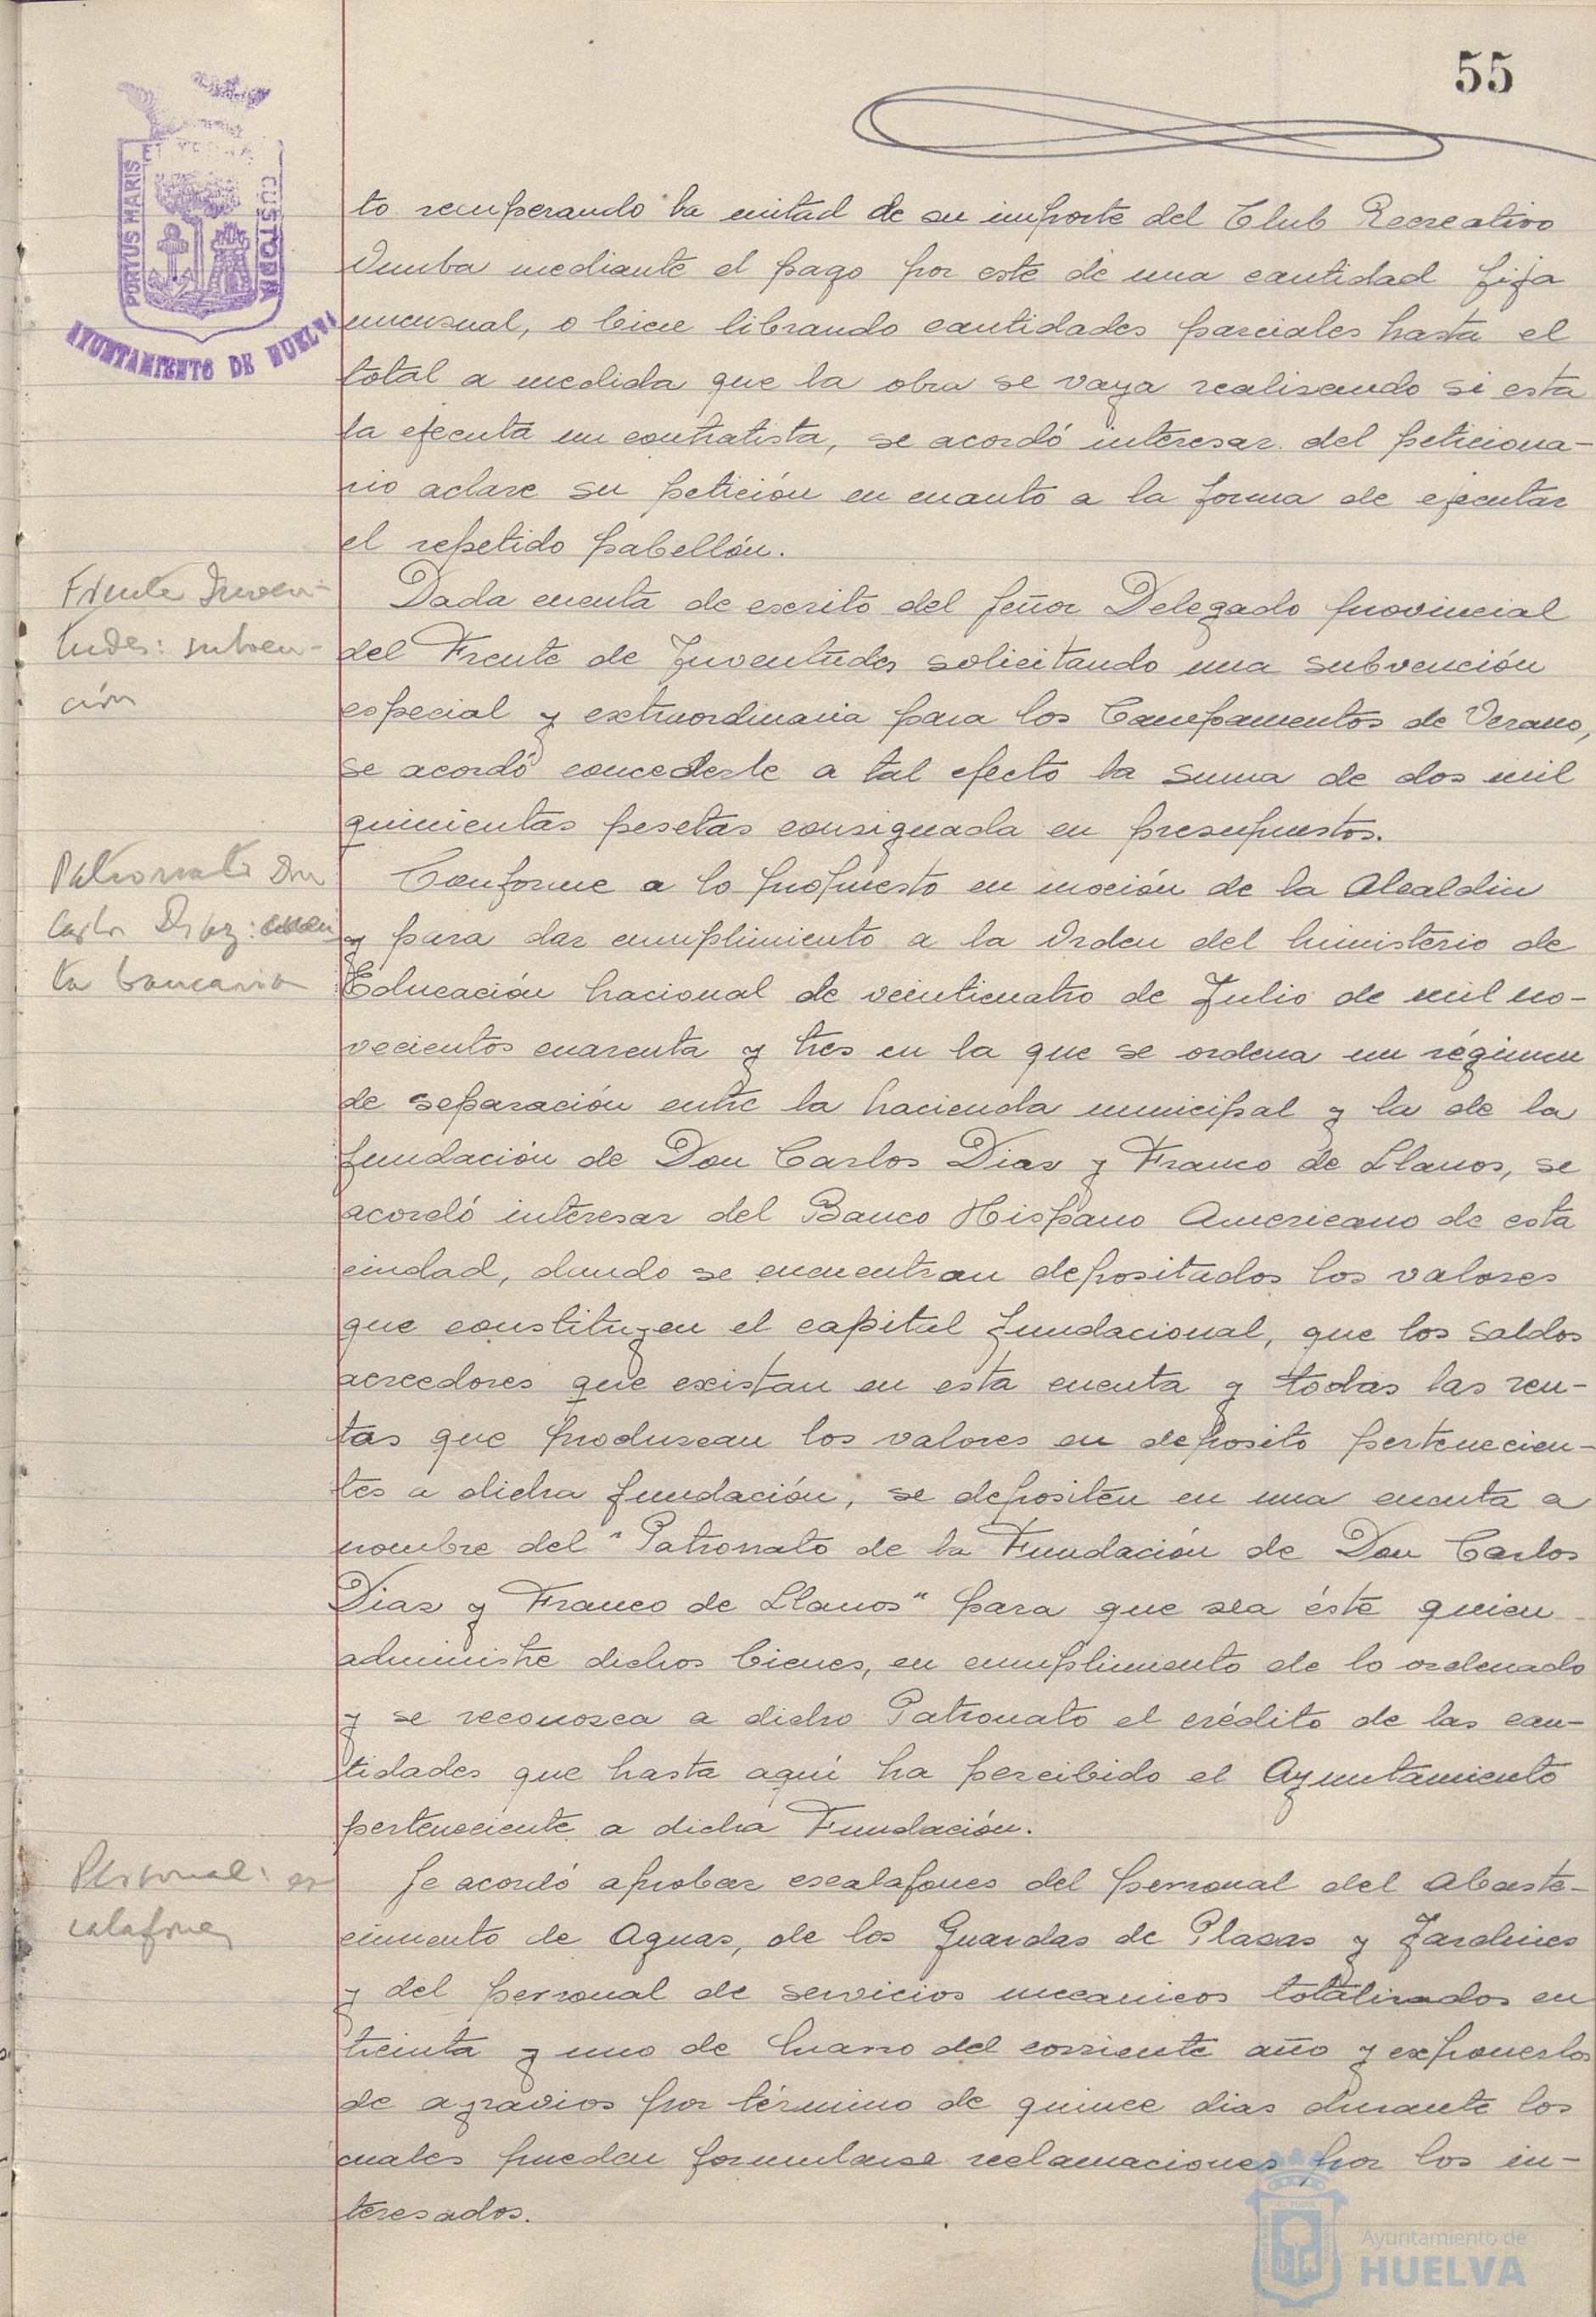 55
PORTUS MARIS
ET TERRA
CUSTODIA
AYUNTAMIENTO DE HUELVA
to recuperando la mitad de su importe del Club Recreativo
Onuba mediante el pago por este de una cantidad fija
mensual, o bien librando cantidades parciales hasta el
total a medida que la obra se vaya realizando si esta
la ejecuta un contratista, se acordó interesar del peticiona-
rio aclare su petición en cuanto a la forma de ejecutar
el repetido pabellón.
Frente Juven-
tudes: subven-
ción
Dada cuenta de escrito del Señor Delegado provincial
del Frente de Juventudes solicitando una subvención
especial y extraordinaria para los Campamentos de Verano,
se acordó concederle a tal efecto la suma de dos mil
quinientas pesetas consignada en presupuestos.
Patronato Don
Carlos Díaz: cuen
ta bancaria
Conforme a lo propuesto en moción de la Alcaldia
y para dar cumplimiento a la Orden del Ministerio de
Educación Nacional de veinticuatro de Julio de mil no-
vecientos cuarenta y tres en la que se ordena un régimen
de separación entre la hacienda municipal y la de la
fundación de Don Carlos Diaz y Franco de Llanos, se
acordó interesar del Banco Hispano Americano de esta
ciudad, donde se encuentran depositados los valores
que constituyen el capital fundacional, que los saldos
acreedores que existan en esta cuenta y todas las ren-
tas que produzcan los valores en deposito pertenecien-
tes a dicha fundación, se depositen en una cuenta a
nombre del "Patronato de la Fundación de Don Carlos
Diaz y Franco de Llanos" para que sea éste quien
administre dichos bienes, en cumplimiento de lo ordenado
y se reconozca a dicho Patronato el crédito de las can-
tidades que hasta aquí ha percibido el Ayuntamiento
perteneciente a dicha Fundación.
Personal: es
calafones
Se acordó aprobar escalafones del personal del Abaste-
cimiento de Aguas, de los Guardas de Plazas y Jardines
y del personal de servicios mecanicos totalizados en
treinta y uno de Marzo del corriente año y exponerlos
de agravios por término de quince dias durante los
cuales pueden formularse reclamaciones por los in-
teresados.
Ayuntamiento de
HUELVA